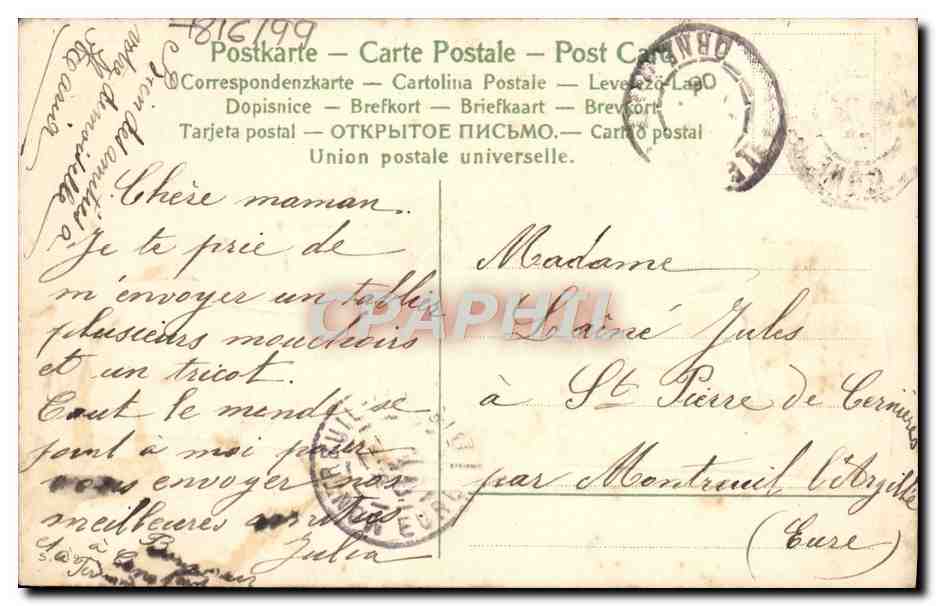 816199
Postkarte — Carte Postale — Post Card
Correspondenzkarte — Cartolina Postale — Levelező-Lap
Dopisnice — Brefkort — Briefkaart — Brevkort
Tarjeta postal — ОТКРЫТОЕ ПИСЬМО. — Cartão postal
Union postale universelle.
Bien des amitiés a
votre demoiselle
Chère maman.
Je te prie de
m'envoyer un tablier
plusieurs mouchoirs
et un tricot.
Tout le monde se
joint à moi pour
vous envoyer nos
meilleures amitiés
Julia
Madame
Laîné Jules
à St Pierre de Cernières
par Montreuil l'Argillé
(Eure)
CPAPHIL
MONTREUIL
EURE
ORNE